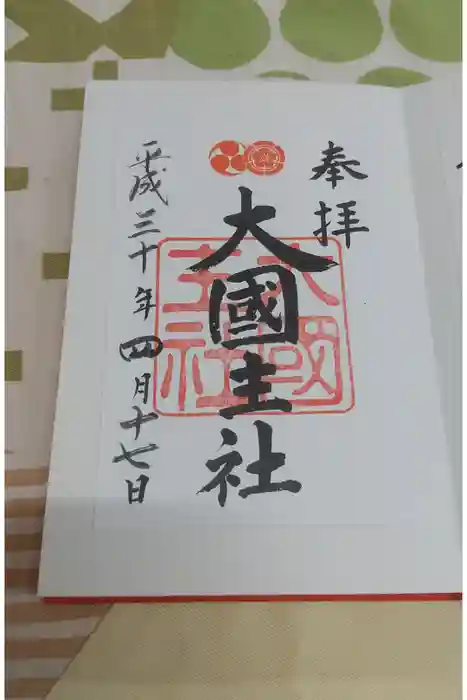 奉拝
大國主社
大國主社
平成三十年四月十七日